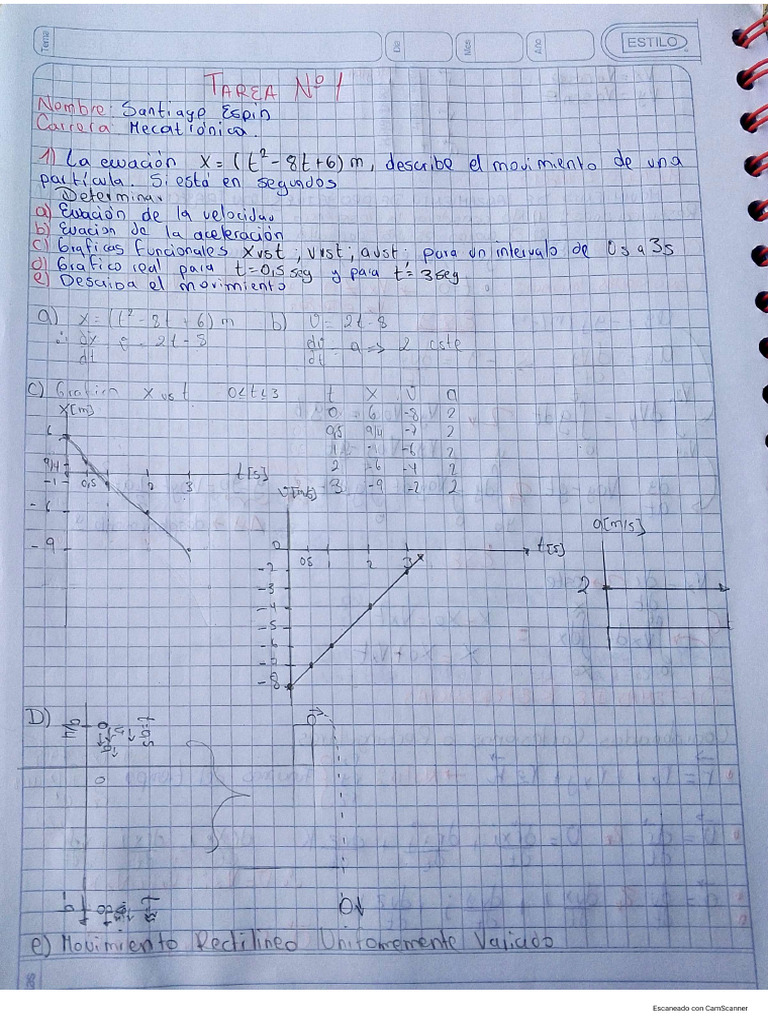 Tema
De
Mes
Año
ESTILO
TAREA Nº1
Nombre: Santiago Espin
Carrera: Mecatrónica.
1) La ecuación x = (t² - 8t + 6) m, describe el movimiento de una
partícula. Si está en segundos
Determinar
a) Ecuación de la velocidad
b) Ecuacion de la aceleración
c) Graficas funcionales x vst ; v vst ; a vst ; para un intervalo de 0s a 3s
d) Grafico real para t = 0,5 seg y para t = 3 seg
e) Describa el movimiento
a) x = (t² - 8t + 6) m b) v = 2t - 8
∴ dx/dt = 2t - 8 dv/dt = a => 2 cste
c) Grafica x vs t 0≤t≤3 t x v a
x[m] 0 6 -8 2
6 0,5 9/4 -7 2
1 -1 -6 2
9/4 2 -6 -4 2
-1 0,5 2 3 t[s] 3 -9 -2 2
-6
-9
v[m/s]
0 0,5 1 2 3 t[s]
-2
-3
-4
-5
-6
-8
a[m/s]
2
D) 9/4 0 t=0,5
0
e) Movimiento Rectilineo Uniformemente Variado
Escaneado con CamScanner